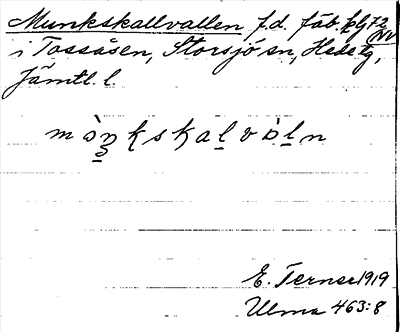 Munkskallvallen f.d. fäb.plg 72 NV
i Tossåsen, Storsjö sn, Hede tg,
Jämtl. l.
mòŋkskalvòln
E. Ternse 1919
Ulma 463:8